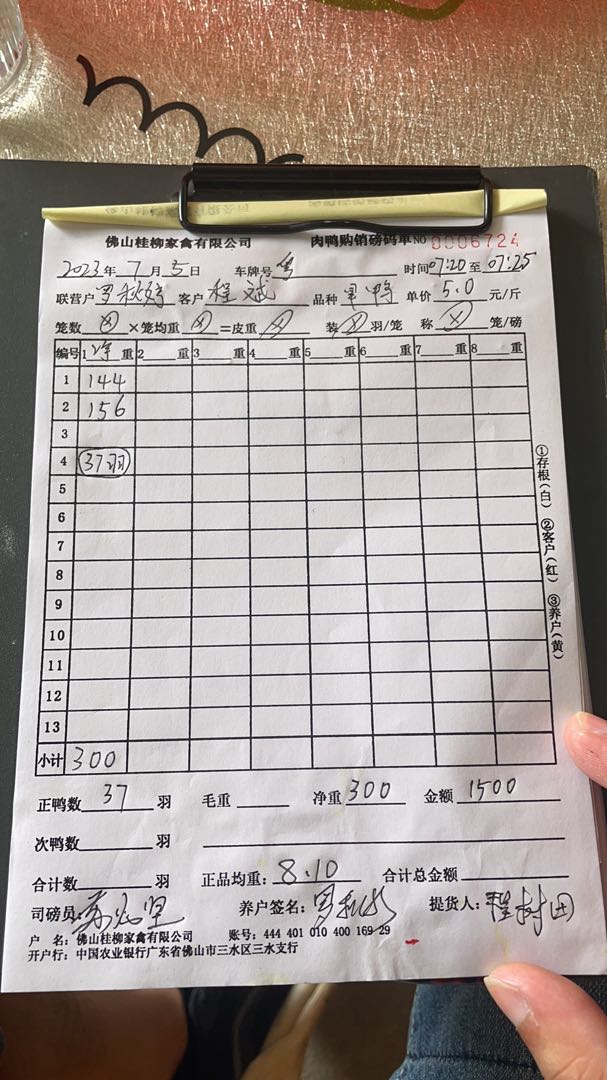 佛山桂柳家禽有限公司 肉鸭购销磅码单 NO 0006724
2023年7月5日 车牌号 粤 时间07:20至07:25
联营户 罗秋婷 客户 程斌 品种 单价 5.0 元/斤
笼数 ×笼均重 =皮重 装 羽/笼 称 笼/磅
编号 1 净重 2 重 3 重 4 重 5 重 6 重 7 重 8 重
1 144
2 156
3
4 37羽
5
6
7
8
9
10
11
12
13
小计 300
①存根(白) ②客户(红) ③养户(黄)
正鸭数 37 羽 毛重 净重 300 金额 1500
次鸭数 羽
合计数 羽 正品均重: 8.10 合计总金额
司磅员: 养户签名: 提货人: 程树田
户 名: 佛山桂柳家禽有限公司 账号: 444 401 010 400 169 29
开户行: 中国农业银行广东省佛山市三水区三水支行